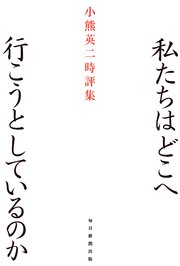 私たちはどこへ
行こうとしているのか
小熊英二時評集
毎日新聞出版